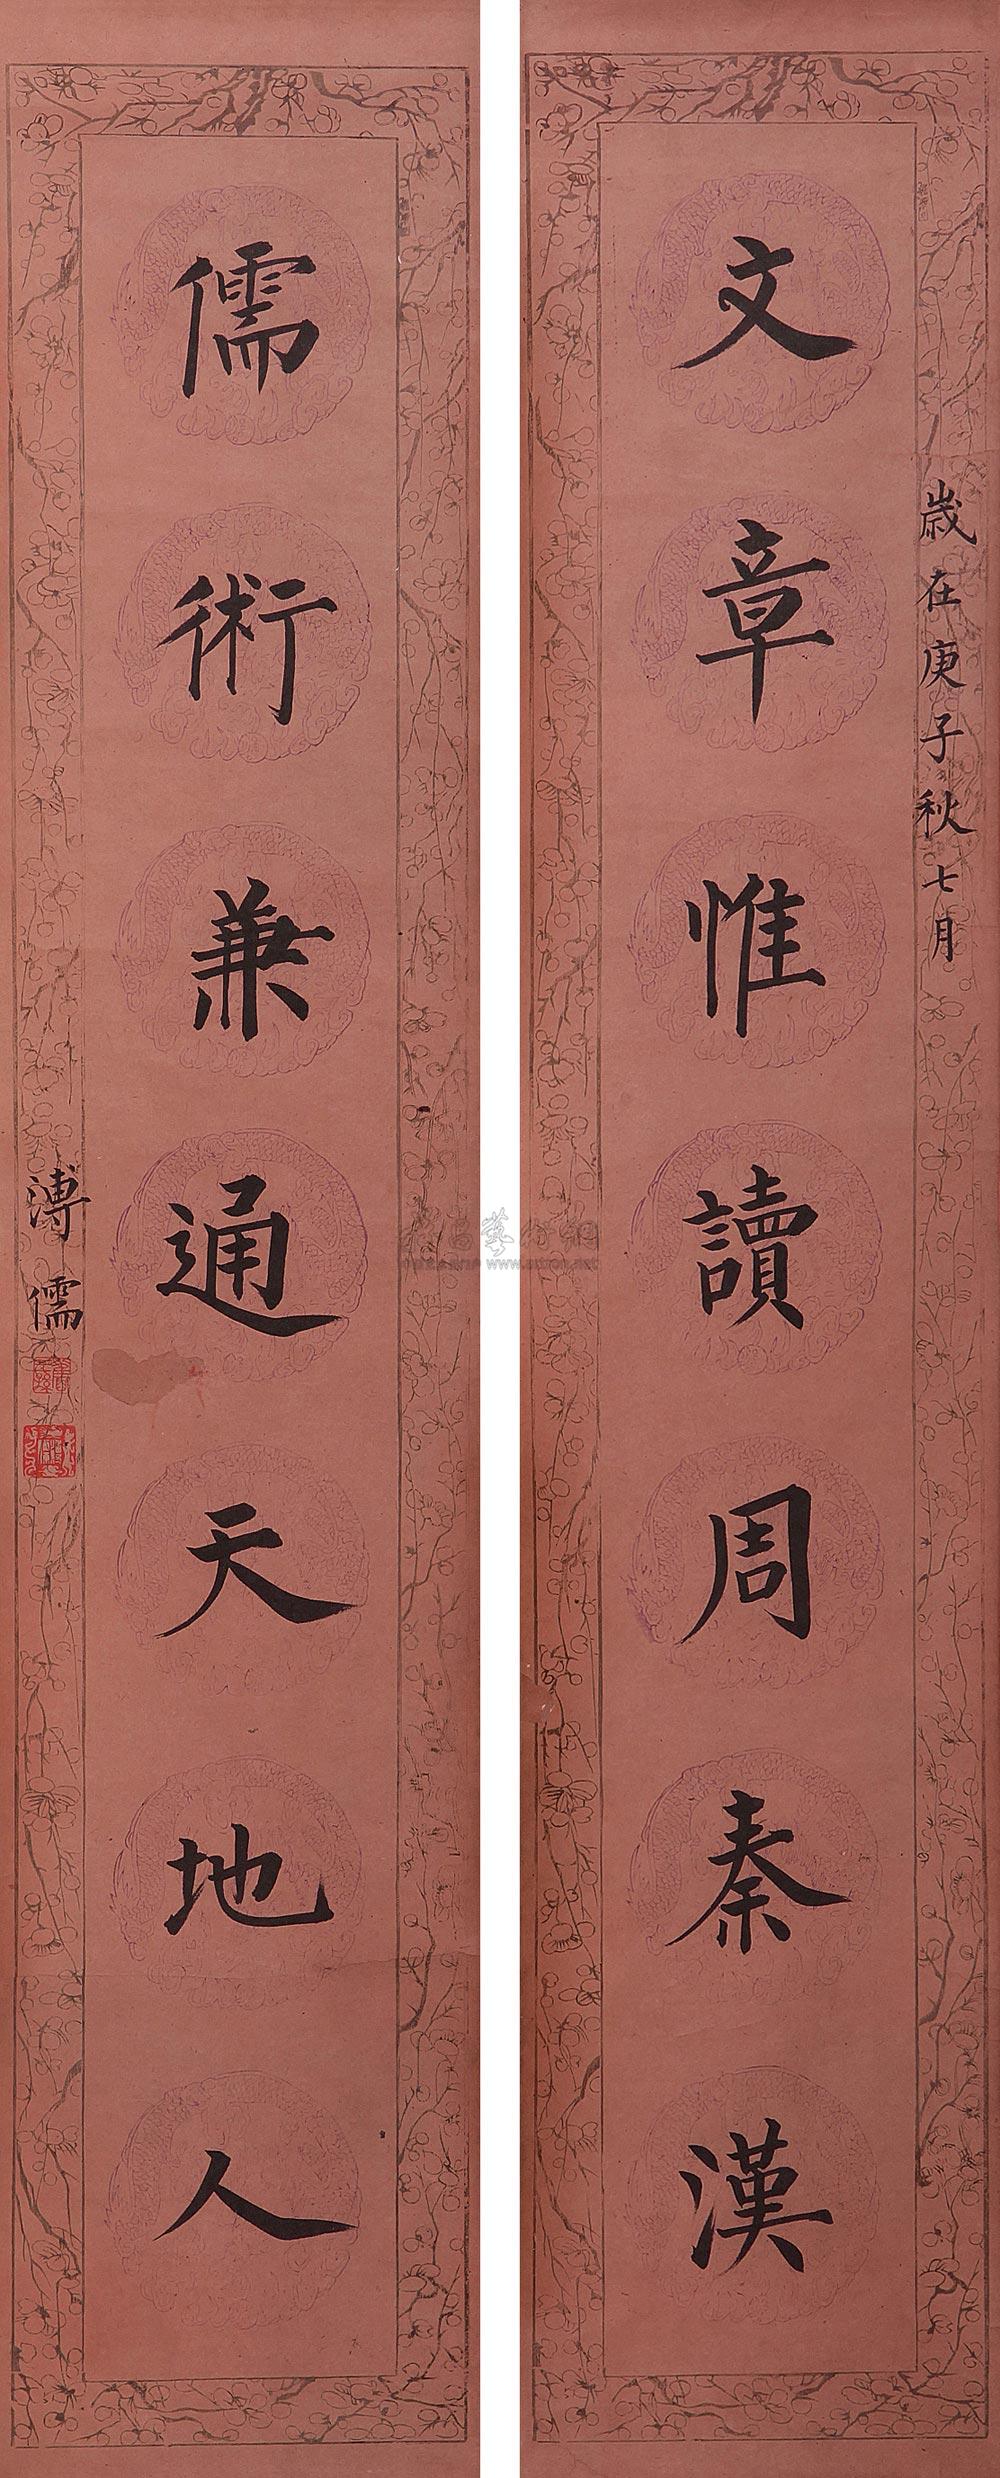 歲在庚子秋七月
文章惟讀周秦漢
儒術兼通天地人
溥儒
www.artron.net